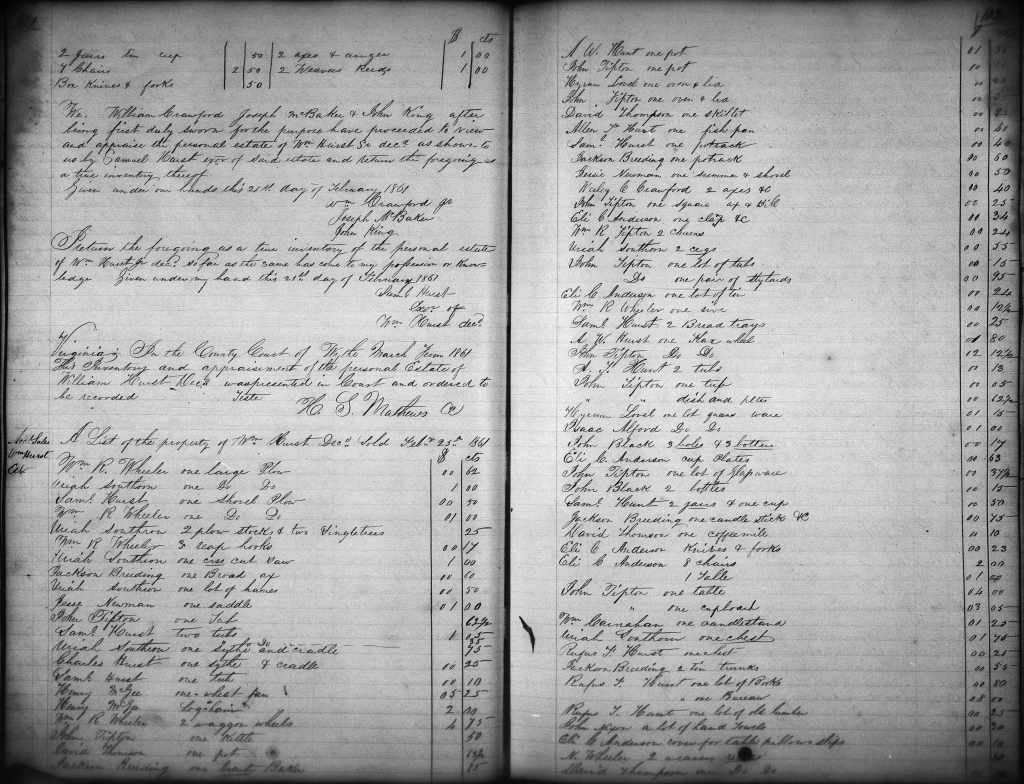 $ cts
2 Juires tin cup 50 2 axes & auger 1 00
4 Chairs 2 50 2 Weavers Reeds 1 00
Box Knives & forks 50
We. William Crawford Joseph McBaker & John King after
being first duly sworn for the purpose have proceeded to view
and appraise the personal estate of Wm Hurst Sr decd as shown to
us by Samuel Hurst exor of said estate and return the foregoing as
a true inventory thereof
Given under our hands this 21st day of February 1861
Wm Crawford Jr
Joseph McBaker
John King
I return the foregoing as a true inventory of the personal estate
of Wm Hurst Sr decd so far as the same has come to my possession or know-
ledge Given under my hand this 21st day of February 1861
Saml Hurst
Exor of
Wm Hurst decd
Virginia; In the County Court of Wythe March Term 1861
This Inventory and appraisement of the personal Estate of
William Hurst Decd was presented in Court and ordered to
be recorded Teste
H. S. Mathews
Wm Hurst
A List of the property of Wm Hurst Decd Sold Feby 25th 1861
$ cts
Wm R. Wheeler one large Plow 00 62
Uriah Southern one Do Do 1 00
Saml Hurst one Shovel Plow 00 50
Wm R Wheeler one Do Do 01 00
Uriah Southron 2 plow stocks & two Singletrees 25
Wm R. Wheeler 3 reap hooks 00 17
Uriah Southron one cros cut saw 1 00
Jackson Breeding one Broad ax 00 60
Uriah Southron one lot of hames 00 50
Jesse Newman one saddle 01 00
John Tipton one 62½
Saml Hurst two tubs 1
Uriah Southron one sythe and cradle 75
Charles Hurst one sythe & cradle 00 25
Saml Hurst one tub 00 10
Henry McGee one wheat fan 05 25
Henry McGee Log chain 2
Wm R Wheeler 2 waggon wheels 4 75
John Tipton one Kettle 50
David Thomson one pot
Jackson Breeding one Baker 15
A W. Hurst one pot 01
John Tipton one pot 00
Hyram Lovel one oven & lid 00
John Tipton one oven & lid 00
David Thompson one skillet 00
Allen T. Hurst one fish pan 00 40
Saml Hurst one potrack 00 40
Jackson Breeding one potrack 00 60
Jessie Newman one & shovel 00 50
Wiley C Crawford 2 axes &c 00 40
John Tipton one Square ax & 00 25
Eli C Anderson one &c 00 34
Wm R. Tipton 2 churns 00 24
Uriah Southron 2 cegs 00 55
John Tipton one lot of tubs 00 15
Do one pair of stylards 00 95
Eli C. Anderson one lot of tin 00 24
Wm R Wheeler one sive 00 12½
Saml Hurst 2 Bread trays 00 25
A. W. Hurst one flax wheel 80
John Tipton Do Do 12 12½
A. T. Hurst 2 tubs 00 13
John Tipton one 00 05
" " dish and 00 12½
Hyram Lovel one lot ware 01 15
Isaac Alford Do Do 01 00
John Black 3 & 3 bottles 00 17
Eli C. Anderson cup Plates 00 63
John Tipton one lot of glapware 00 37½
John Black 2 bottles 00 15
Saml Hurst 2 jars & one cup 00 50
Jackson Breeding one candle stick &c 00 75
David Thomson one coffeemill 10
Eli C Anderson Knives & forks 00 23
Eli C Anderson 8 chairs 2 00
1 Table 01
John Tipton one table 04 00
" one cupboard 03 05
Wm Carnahan one candlestand 01 20
Uriah Southern one chest 01 40
Rufus F. Hurst one chest 00 25
Jackson Breeding 2 tin trunks 00 55
Rufus F. Hurst one lot of Books 00 80
" one Bureau 08 00
Rufus F. Hurst one lot of old lumber 00 25
John a lot of hand towels 00 30
Eli C Anderson cover for table pillow slips 00 10
W. Wheeler 2
David Thompson one Do Do